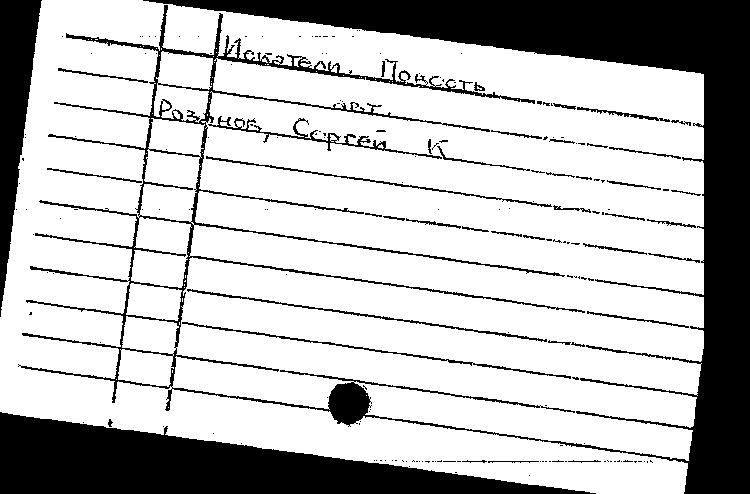 Искатели. Повесть.
авт.
Розанов, Сергей К